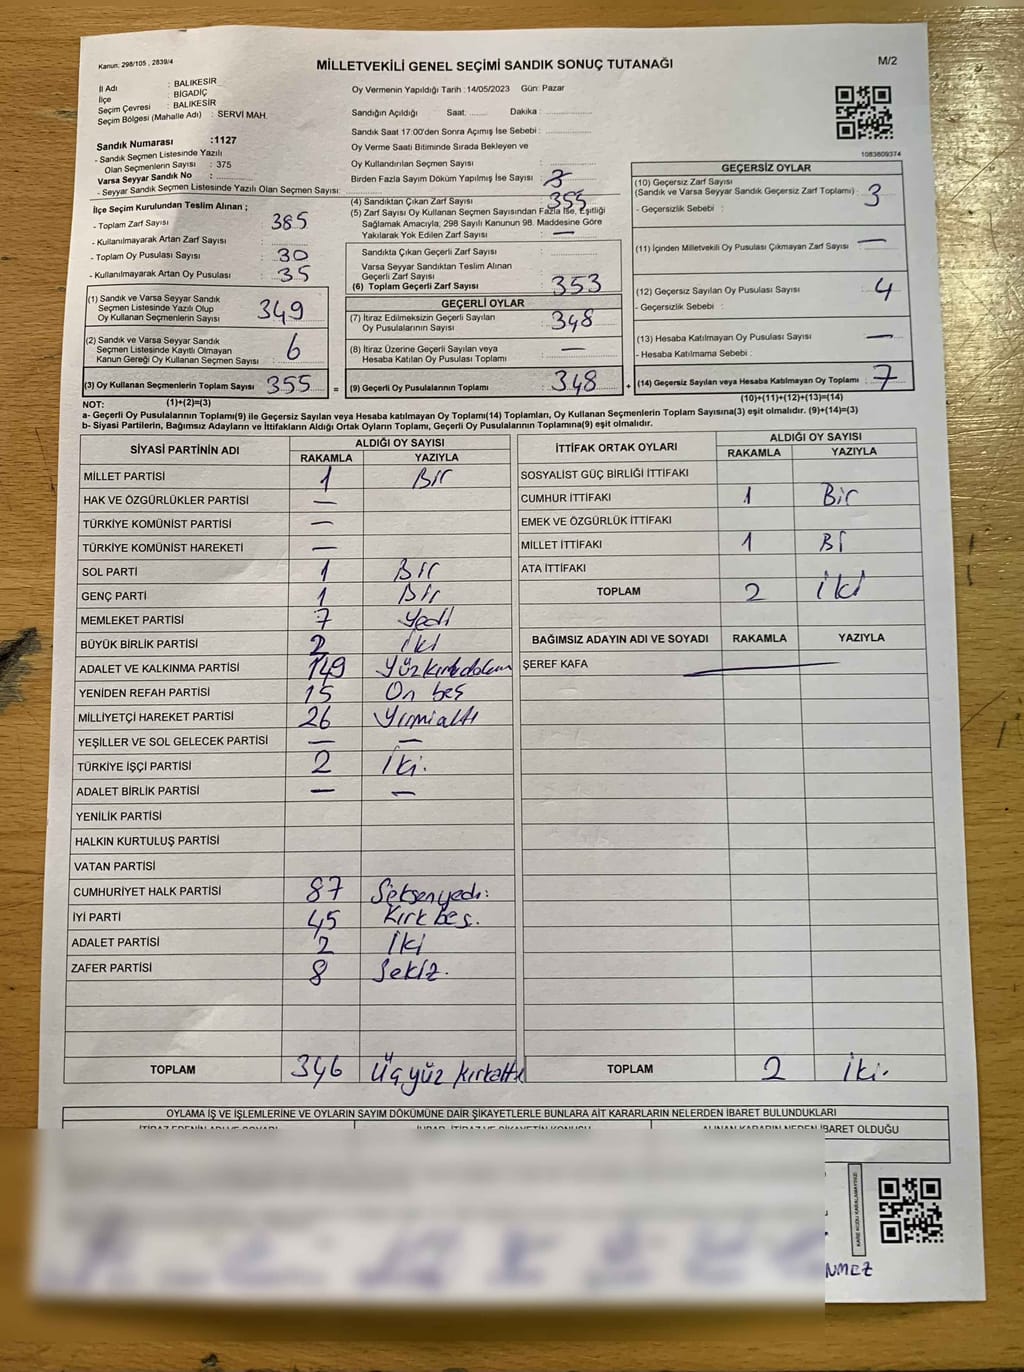 Kanun: 298/105 , 2839/4
MİLLETVEKİLİ GENEL SEÇİMİ SANDIK SONUÇ TUTANAĞI
M/2
İl Adı : BALIKESİR
İlçe : BİGADİÇ
Seçim Çevresi : BALIKESİR
Seçim Bölgesi (Mahalle Adı) : SERVİ MAH.
Sandık Numarası :1127
- Sandık Seçmen Listesinde Yazılı
Olan Seçmenlerin Sayısı : 375
Varsa Seyyar Sandık No :
- Seyyar Sandık Seçmen Listesinde Yazılı Olan Seçmen Sayısı:
Oy Vermenin Yapıldığı Tarih :14/05/2023 Gün: Pazar
Sandığın Açıldığı Saat: Dakika :
Sandık Saat 17:00'den Sonra Açımış İse Sebebi :
Oy Verme Saati Bitiminde Sırada Bekleyen ve
Oy Kullandırılan Seçmen Sayısı :
Birden Fazla Sayım Döküm Yapılmış İse Sayısı :
1083809374
İlçe Seçim Kurulundan Teslim Alınan ;
- Toplam Zarf Sayısı : 385
- Kullanılmayarak Artan Zarf Sayısı :
- Toplam Oy Pusulası Sayısı : 30
- Kullanılmayarak Artan Oy Pusulası : 35
(1) Sandık ve Varsa Seyyar Sandık
Seçmen Listesinde Yazılı Olup
Oy Kullanan Seçmenlerin Sayısı : 349
(2) Sandık ve Varsa Seyyar Sandık
Seçmen Listesinde Kayıtlı Olmayan
Kanun Gereği Oy Kullanan Seçmen Sayısı : 6
(3) Oy Kullanan Seçmenlerin Toplam Sayısı : 355
(1)+(2)=(3)
(4) Sandıktan Çıkan Zarf Sayısı : 355
(5) Zarf Sayısı Oy Kullanan Seçmen Sayısından Fazla İse, Eşitliği
Sağlamak Amacıyla, 298 Sayılı Kanunun 98. Maddesine Göre
Yakılarak Yok Edilen Zarf Sayısı : —
Sandıkta Çıkan Geçerli Zarf Sayısı :
Varsa Seyyar Sandıktan Teslim Alınan
Geçerli Zarf Sayısı :
(6) Toplam Geçerli Zarf Sayısı : 353
GEÇERLİ OYLAR
(7) İtiraz Edilmeksizin Geçerli Sayılan
Oy Pusulalarının Sayısı : 348
(8) İtiraz Üzerine Geçerli Sayılan veya
Hesaba Katılan Oy Pusulası Toplamı : —
= (9) Geçerli Oy Pusulalarının Toplamı : 348
GEÇERSİZ OYLAR
(10) Geçersiz Zarf Sayısı
(Sandık ve Varsa Seyyar Sandık Geçersiz Zarf Toplamı) : 3
- Geçersizlik Sebebi :
(11) İçinden Milletvekili Oy Pusulası Çıkmayan Zarf Sayısı : —
(12) Geçersiz Sayılan Oy Pusulası Sayısı : 4
- Geçersizlik Sebebi :
(13) Hesaba Katılmayan Oy Pusulası Sayısı : —
- Hesaba Katılmama Sebebi :
+ (14) Geçersiz Sayılan veya Hesaba Katılmayan Oy Toplamı : 7
(10)+(11)+(12)+(13)=(14)
NOT:
a- Geçerli Oy Pusulalarının Toplamı(9) ile Geçersiz Sayılan veya Hesaba katılmayan Oy Toplamı(14) Toplamları, Oy Kullanan Seçmenlerin Toplam Sayısına(3) eşit olmalıdır. (9)+(14)=(3)
b- Siyasi Partilerin, Bağımsız Adayların ve İttifakların Aldığı Ortak Oyların Toplamı, Geçerli Oy Pusulalarının Toplamına(9) eşit olmalıdır.
SİYASİ PARTİNİN ADI ALDIĞI OY SAYISI
RAKAMLA YAZIYLA
MİLLET PARTİSİ 1 Bir
HAK VE ÖZGÜRLÜKLER PARTİSİ —
TÜRKİYE KOMÜNİST PARTİSİ —
TÜRKİYE KOMÜNİST HAREKETİ —
SOL PARTİ 1 Bir
GENÇ PARTİ 1 Bir
MEMLEKET PARTİSİ 7 Yedi
BÜYÜK BİRLİK PARTİSİ 2 iki
ADALET VE KALKINMA PARTİSİ 149
YENİDEN REFAH PARTİSİ 15 On beş
MİLLİYETÇİ HAREKET PARTİSİ 26 Yirmialtı
YEŞİLLER VE SOL GELECEK PARTİSİ — —
TÜRKİYE İŞÇİ PARTİSİ 2 İki.
ADALET BİRLİK PARTİSİ — —
YENİLİK PARTİSİ
HALKIN KURTULUŞ PARTİSİ
VATAN PARTİSİ
CUMHURİYET HALK PARTİSİ 87 Seksenyedi.
İYİ PARTİ 45 Kırkbeş.
ADALET PARTİSİ 2 İki
ZAFER PARTİSİ 8 Sekiz.
TOPLAM 346 Üçyüz kırkaltı
İTTİFAK ORTAK OYLARI ALDIĞI OY SAYISI
RAKAMLA YAZIYLA
SOSYALİST GÜÇ BİRLİĞİ İTTİFAKI
CUMHUR İTTİFAKI 1 Bir
EMEK VE ÖZGÜRLÜK İTTİFAKI
MİLLET İTTİFAKI 1 Bi
ATA İTTİFAKI
TOPLAM 2 iki
BAĞIMSIZ ADAYIN ADI VE SOYADI RAKAMLA YAZIYLA
ŞEREF KAFA —
TOPLAM 2 İki.
OYLAMA İŞ VE İŞLEMLERİNE VE OYLARIN SAYIM DÖKÜMÜNE DAİR ŞİKAYETLERLE BUNLARA AİT KARARLARIN NELERDEN İBARET BULUNDUKLARI
ALINAN KARARIN NEDEN İBARET OLDUĞU
KARE KODU KARALAMAYINIZ
NMEZ